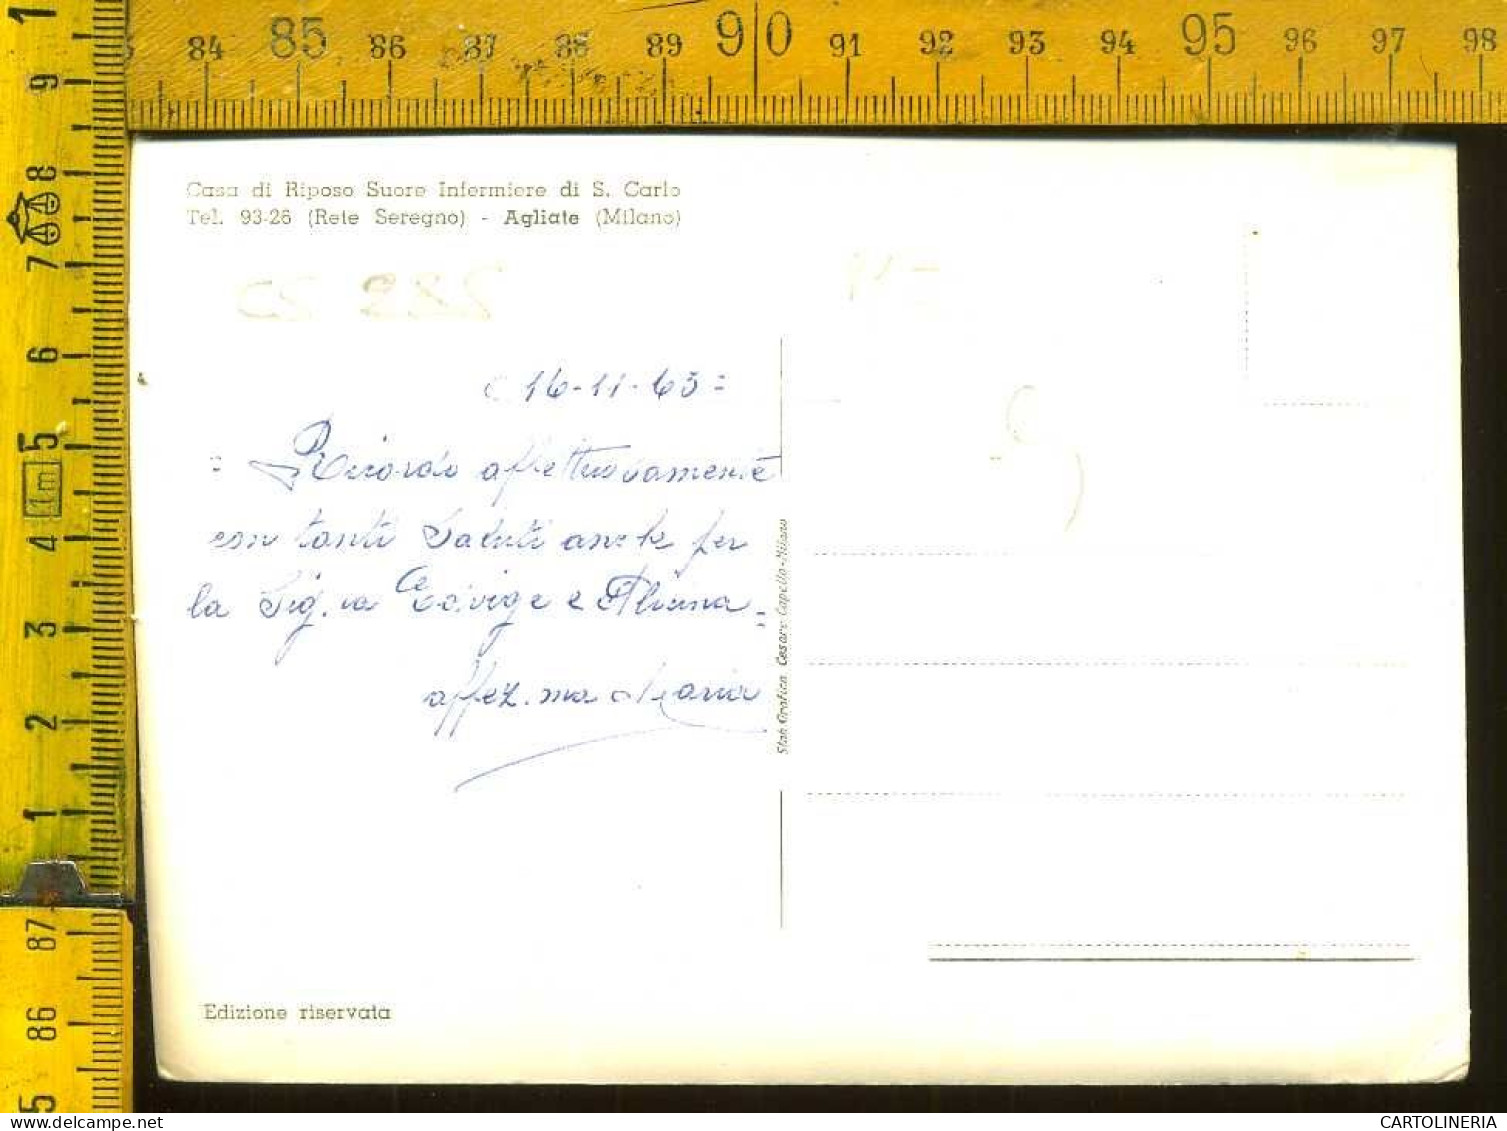 84 85 86 87 88 89 90 91 92 93 94 95 96 97 98
1
9
8
7
6
5
1m
4
3
2
1
87
86
Casa di Riposo Suore Infermiere di S. Carlo
Tel. 93-26 (Rete Seregno) - Agliate (Milano)
16-11-63=
= Ricordo affettuosamente
con tanti Saluti anche per
la Sig.ra Edvige e
affez.ma Maria
Stab. Grafico Cesare Capello-Milano
Edizione riservata
CARTOLINERIA